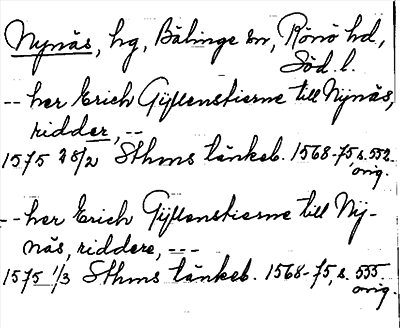 Nynäs, hg, Bälinge sn, Rönö hd,
Söd. l.
-- her Erich Gijllenstierne till Nynäs,
ridder, --
1575 25/2 Sthms tänkeb. 1568-75, s. 552.
orig.
-- her Erich Gijllenstierne till Ny-
näs, riddere, ---
1575 1/3 Sthms tänkeb. 1568-75, s. 555.
orig.